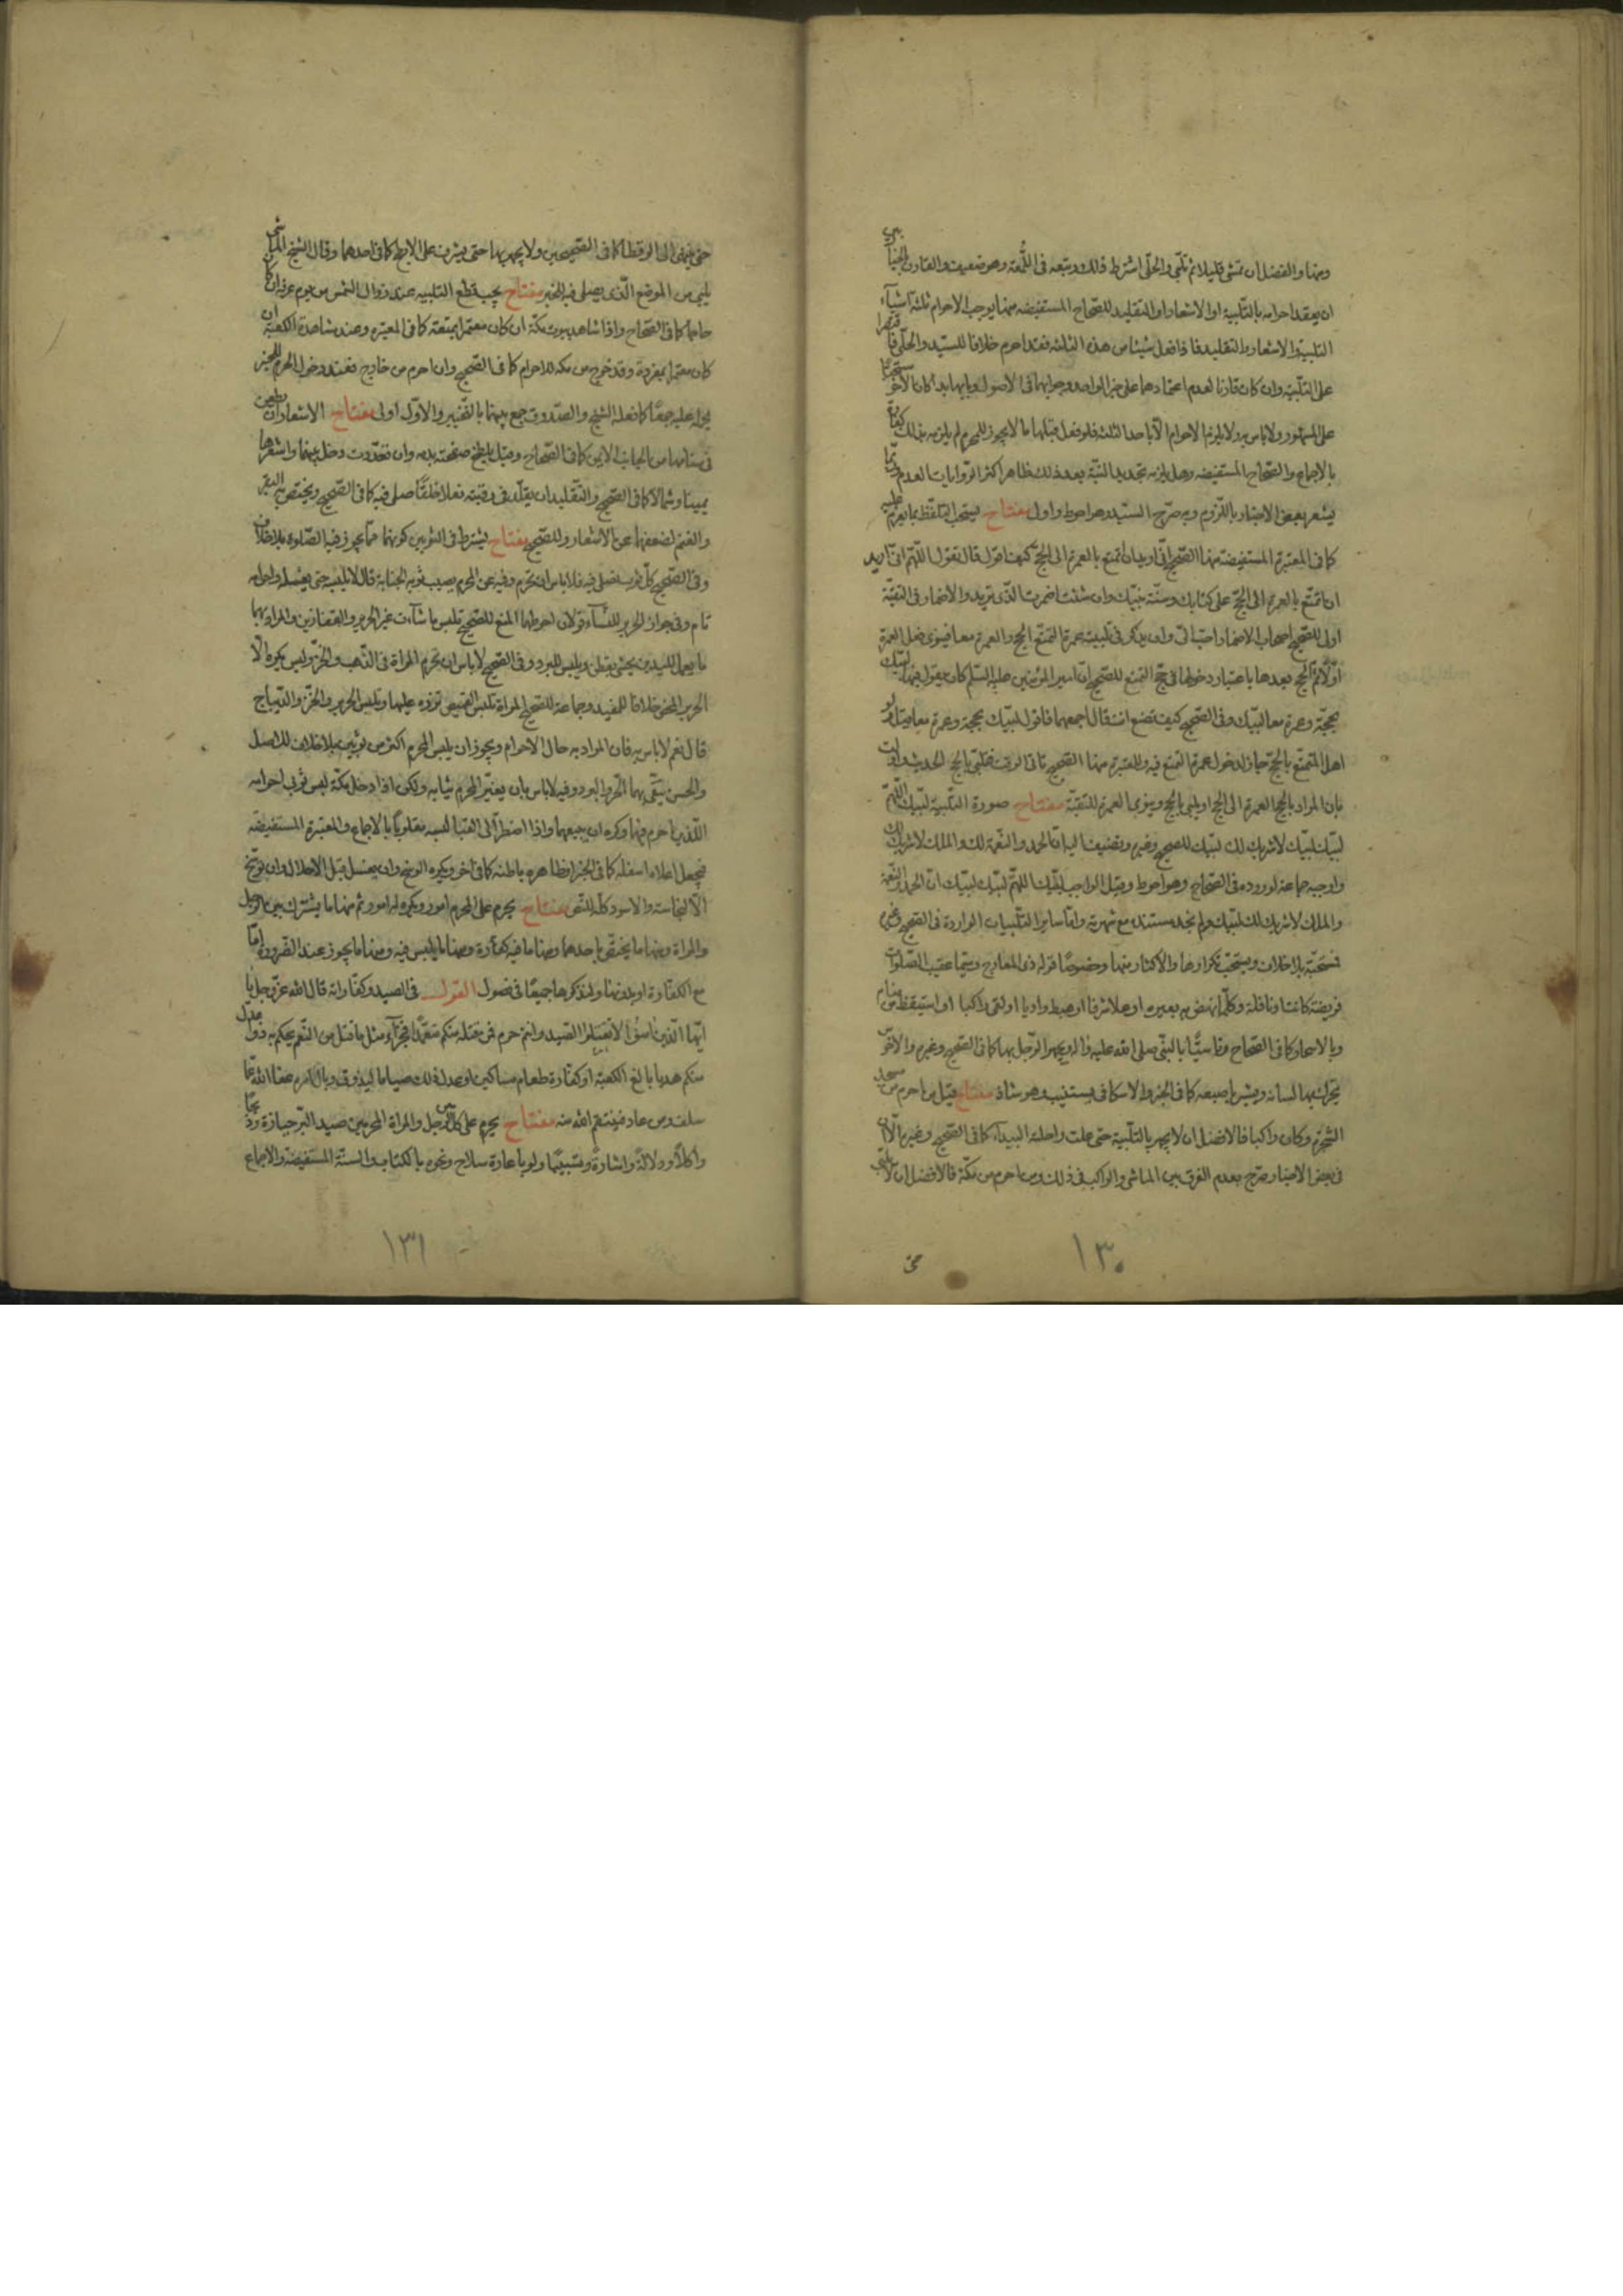 ومنها والفضل ان تمشى قليلا ثم تلبى والحلى اشترط ذلك وتبعه فى اللمعة وهو ضعيف والقارن بالخيار بين
ان يعقد احرامه بالتلبية او الاشعار او التقليد للصحاح المستفيضه منها يوجب الاحرام ثلثة اشيآء
التلبية والاشعار والتقليد فاذا فعل شيئا من هذه الثلثه فقد احرم خلافا للسيد والحلى فاقتصرا
على التلبية وان كان قارنا لعدم اعتمادهما على خبر الواحد وجوابهما فى الاصول وبايهما بدا كان الاخر مستحبا
على المشهور ولا باس به ولا يلزم الاحرام الا باحد الثلثة فلو فعل قبلها ما لا يجوز للمحرم لم يلزمه بذلك كفارة
بالاجماع والصحاح المستفيضه وهل يلزمه تجديد النية بعد ذلك ظاهر اكثر الروايات العدم وربما
يشعر بعض الاخبار باللزوم وبه صرح السيد وهو احوط واولى مفتاح يستحب التلفظ بما يعزم عليه
كما فى المعتبرة المستفيضة منها الصحيح انى اريد ان اتمتع بالعمرة الى الحج كيف اقول قال تقول اللهم انى اريد
ان اتمتع بالعمرة الى الحج على كتابك وسنة نبيك وان شئت اضمرت الذى تريد والاضمار فى التقية
اولى للصحيح اصحاب الاضمار احب الى وان يذكر فى تلبيته عمرة التمتع الحج والعمرة معا فينوى فعل العمرة
اولا ثم الحج بعدها باعتبار دخولها فى حج التمتع للصحيح ان امير المؤمنين عليه السلم كان يقول فيها لبيك
بحجة وعمرة معا لبيك وفى الصحيح كيف تصنع انت قال اجمعهما فاقول لبيك بحجة وعمرة معا
اهل المتمتع بالحج جاز لدخول عمرة التمتع فيه وللمعتبرة منها الصحيح الحديث
بان المراد بالحج العمرة الى الحج او يلبى بالحج وينوى العمرة للتقية مفتاح صورة التلبية لبيك اللهم
لبيك لبيك لا شريك لك لبيك للصحيح وغيره وتضيف اليه ان الحمد والنعمة لك والملك لا شريك لك
واوجبه جماعة لوروده فى الصحاح وهو احوط وقيل الواجب لبيك اللهم لبيك لبيك ان الحمد والنعمة
والملك لا شريك لك لبيك ولم نجد مستنده مع شهرته واما ساير التلبيات الواردة فى الصحيح وغيره
فمستحبة بلا خلاف ويستحب تكرارها والاكثار منها وخصوصا قوله ذى المعارج وسيما عقيب الصلوات
فريضة كانت او نافلة وكلما نهض به بعيره او علا شرفا او هبط واديا او لقى راكبا او استيقظ من منامه
وبالاسحار كما فى الصحاح تاسيا بالنبى صلى الله عليه واله ويجهر الرجل بها كما فى الصحيح وغيره والاخرس
يحرك بها لسانه ويشير باصبعه كما فى الخبر والاسكافى يستنيب وهو شاذ مفتاح قيل من احرم من مسجد
الشجرة وكان راكبا فالافضل ان لا يجهر بالتلبية حتى علت راحلته البيداء كما فى الصحيح وغيره الا ان
فى بعض الاخبار صرح بعدم الفرق بين الماشى والراكب فى ذلك ومن احرم من مكة فالافضل ان لا يلبى
حتى
١٣٠
حتى ينتهى الى الرقطا كما فى الصحيحين ولا يجهر بها حتى يشرف على الابطح كما فى احدهما وقال الشيخ الماشى
يلبى من الموضع الذى يصلى فيه للخبر مفتاح يجب قطع التلبيه عند زوال الشمس من يوم عرفه ان كان
حاجا كما فى الصحاح واذا شاهد بيوت مكة ان كان معتمرا بمتعة كما فى المعتبره وعند مشاهدة الكعبة ان
كان معتمرا بمفردة وقد خرج من مكه للاحرام كما فى الصحيح وان احرم من خارج فعند دخول الحرم للخبر
عليه جمعا كما فعله الشيخ والصدوق جمع بينهما بالتخيير والاول اولى مفتاح الاشعار ان يطعن
فى سنامها من الجانب الايمن كما فى الصحاح وقيل يلطخ صفحته بدمه وان تعددت دخل بينها واشعرها
يمينا وشمالا كما فى الصحيح والتقليد ان يقلد فى رقبته نعلا خلقا صلى فيه كما فى الصحيح ويختص به البقر
والغنم لضعفهما عن الاشعار وللصحيح مفتاح يشترط فى الثوبين كونهما مما يجوز فيه الصلوة بلا خلاف
وفى الصحيح كل ثوب تصلى فيه فلا باس ان تحرم وفيه عن المحرم يصيب ثوبه الجنابة قال لا يلبسه حتى يغسله واحرامه
تام وفى جواز الحرير للنسآء قولان احوطهما المنع للصحيح تلبس ما شآءت غير الحرير والقفازين والمراد بهما
ما يعمل لليدين يحشى بقطن ويلبس للبرد وفى الصحيح لا باس ان تحرم المراة فى الذهب والخز وليس يكره الا
الحرير المحض خلافا للمفيد وجماعة للصحيح المراة تلبس القميص تزره عليها وتلبس الحرير والخز والديباج
قال نعم لا باس به فان المراد به حال الاحرام ويجوز ان يلبس المحرم اكثر من ثوبين بلا خلاف للاصل
والحسن يتقى بهما الحر والبرد وفيه لا باس بان يغير المحرم ثيابه ولكن اذا دخل مكة لبس ثوبى احرامه
اللذين احرم فيهما وكره ان يبيعهما واذا اضطر الى القبا لبسه مقلوبا بالاجماع والمعتبرة المستفيضه
فيجعل اعلاه اسفله كما فى الخبر او ظاهره باطنه كما فى اخر ويكره الوسخ وان يغسل قبل الاحلال وان توسخ
الا لنجاسة والاسود كله للنص مفتاح يحرم على المحرم امور ويكره له امور ثم منها ما يشترك بين الرجل
والمراة ومنها ما يختص باحدهما ومنها ما فيه كفارة ومنها ما ليس فيه ومنها ما يجوز عند الضرورة اما
مع الكفارة او بدونها ولنذكرها جميعا فى فصول القول فى الصيد وكفاراته قال الله عز وجل يا
ايها الذين امنوا لا تقتلوا الصيد وانتم حرم فمن قتله منكم متعمدا فجزآء مثل ما قتل من النعم يحكم به ذوا عدل
منكم هديا بالغ الكعبة او كفارة طعام مساكين او عدل ذلك صياما ليذوق وبال امره عفا الله عما
سلف ومن عاد فينتقم الله منه مفتاح يحرم على كل من الرجل والمراة المحرمين صيد البر حيازة وذبحا
واكلا ودلالة واشارة وتسبيبا ولو باعارة سلاح ونحوه بالكتاب والسنة المستفيضة والاجماع
١٣١